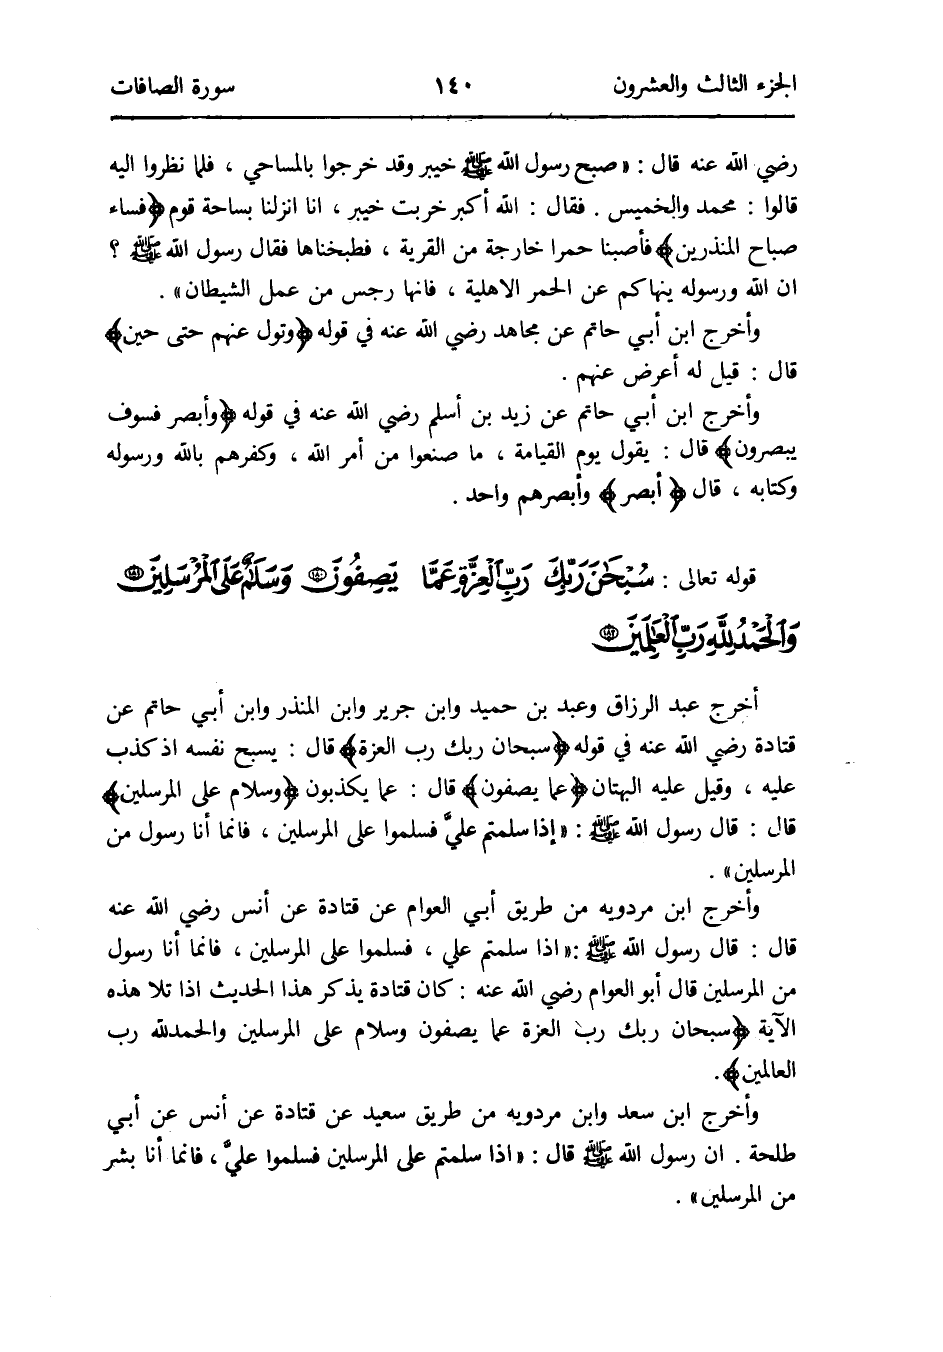 الجزء الثالث والعشرون ١٤٠ سورة الصافات
رضي الله عنه قال : « صبح رسول الله ﷺ خيبر وقد خرجوا بالمساحي ، فلما نظروا اليه
قالوا : محمد والخميس . فقال : الله أكبر خربت خيبر ، انا انزلنا بساحة قوم ﴿فساء
صباح المنذرين﴾ فأصبنا حمرا خارجة من القرية ، فطبخناها فقال رسول الله ﷺ ؟
ان الله ورسوله ينهاكم عن الحمر الاهلية ، فانها رجس من عمل الشيطان» .
وأخرج ابن أبي حاتم عن مجاهد رضي الله عنه في قوله ﴿وتول عنهم حتى حين﴾
قال : قيل له أعرض عنهم .
وأخرج ابن أبي حاتم عن زيد بن أسلم رضي الله عنه في قوله ﴿وأبصر فسوف
يبصرون﴾ قال : يقول يوم القيامة ، ما صنعوا من أمر الله ، وكفرهم بالله ورسوله
وكتابه ، قال ﴿ أبصر ﴾ وأبصرهم واحد .
قوله تعالى : سُبْحَٰنَ رَبِّكَ رَبِّ ٱلْعِزَّةِ عَمَّا يَصِفُونَ ﴿١٨٠﴾ وَسَلَٰمٌ عَلَى ٱلْمُرْسَلِينَ ﴿١٨١﴾
وَٱلْحَمْدُ لِلَّهِ رَبِّ ٱلْعَٰلَمِينَ ﴿١٨٢﴾
أخرج عبد الرزاق وعبد بن حميد وابن جرير وابن المنذر وابن أبي حاتم عن
قتادة رضي الله عنه في قوله ﴿سبحان ربك رب العزة﴾ قال : يسبح نفسه اذ كذب
عليه ، وقيل عليه البهتان ﴿عما يصفون﴾ قال : عما يكذبون ﴿وسلام على المرسلين﴾
قال : قال رسول الله ﷺ : « إذا سلمتم عليَّ فسلموا على المرسلين ، فانما أنا رسول من
المرسلين» .
وأخرج ابن مردويه من طريق أبي العوام عن قتادة عن أنس رضي الله عنه
قال : قال رسول الله ﷺ :« اذا سلمتم علي ، فسلموا على المرسلين ، فانما أنا رسول
من المرسلين قال أبو العوام رضي الله عنه : كان قتادة يذكر هذا الحديث اذا تلا هذه
الآية ﴿سبحان ربك رب العزة عما يصفون وسلام على المرسلين والحمدلله رب
العالمين﴾.
وأخرج ابن سعد وابن مردويه من طريق سعيد عن قتادة عن أنس عن أبي
طلحة . ان رسول الله ﷺ قال : « اذا سلمتم على المرسلين فسلموا عليَّ ، فانما أنا بشر
من المرسلين» .